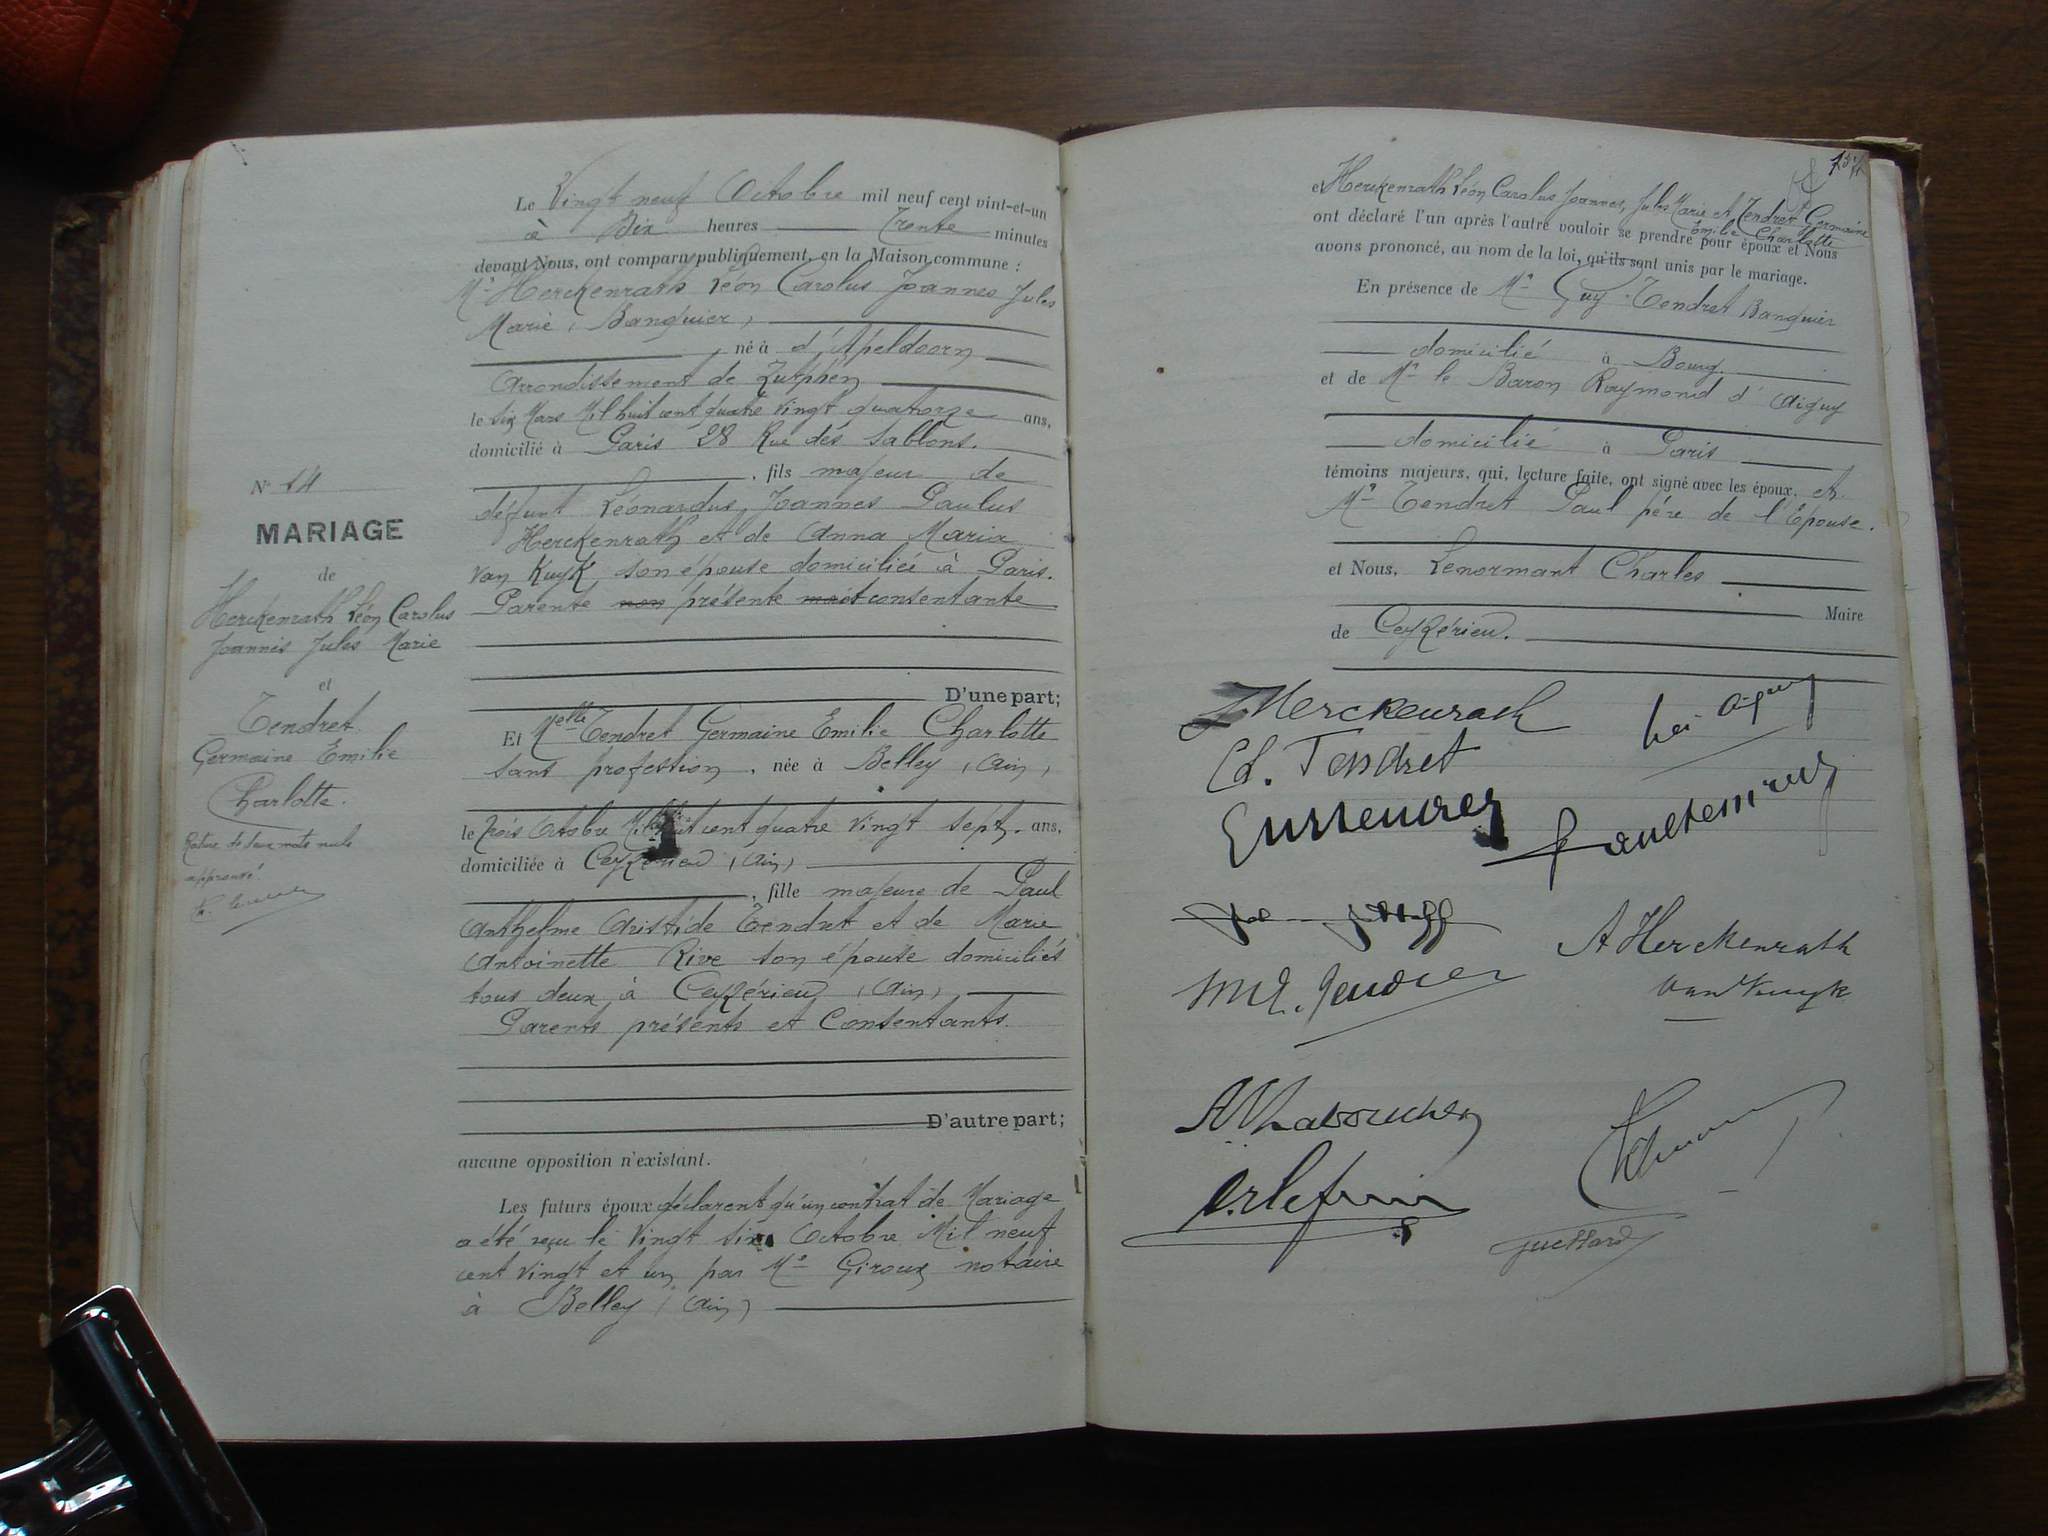 Le Vingt neuf Octobre mil neuf cent vint-et-un
à Dix heures Trente minutes
devant Nous, ont comparu publiquement, en la Maison commune :
Mr Herckenrath Léon Carolus Joannes Jules
Marie, Banquier,
né à d'Apeldoorn
Arrondissement de Zutphen
le Six Mars Mil huit cent quatre Vingt quatorze ans,
domicilié à Paris 28 Rue des Sablons.
, fils majeur de
défunt Léonardus, Joannes Paulus
Herckenrath et de Anna Maria
Van Kuyk, son épouse domiciliée à Paris.
Parente non présente mais consentante
D'une part;
Et Melle Tendret Germaine Emilie Charlotte
sans profession, née à Belley (Ain)
le Trois Octobre Mil huit cent quatre Vingt Sept. ans,
domiciliée à Ceyzérieu (Ain)
, fille majeure de Paul
Anthelme Aristide Tendret et de Marie
Antoinette Rive son épouse domiciliés
tous deux à Ceyzérieu (Ain)
Parents présents et Consentants.
D'autre part;
aucune opposition n'existant.
Les futurs époux déclarent qu'un contrat de Mariage
a été reçu le Vingt six Octobre Mil neuf
cent Vingt et un par Me Giroux notaire
à Belley (Ain)
N° 14
MARIAGE
de
Herckenrath Léon Carolus
Joannès Jules Marie
et
Tendret
Germaine Emilie
Charlotte.
Rature de deux mots nuls
approuvé
et Herckenrath Léon Carolus Joannes, Jules Marie et Tendret Germaine
Emilie Charlotte
ont déclaré l'un après l'autre vouloir se prendre pour époux et Nous
avons prononcé, au nom de la loi, qu'ils sont unis par le mariage.
En présence de Mr Guy Tendret Banquier
domicilié à Bourg
et de Mr le Baron Raymond d'Aiguy
domicilié à Paris
témoins majeurs, qui, lecture faite, ont signé avec les époux, et
Mr Tendret Paul père de l'Epouse.
et Nous, Lenormant Charles
Maire
de Ceyzérieu.
Herckenrath
Tendret
A Herckenrath
van Kuyk